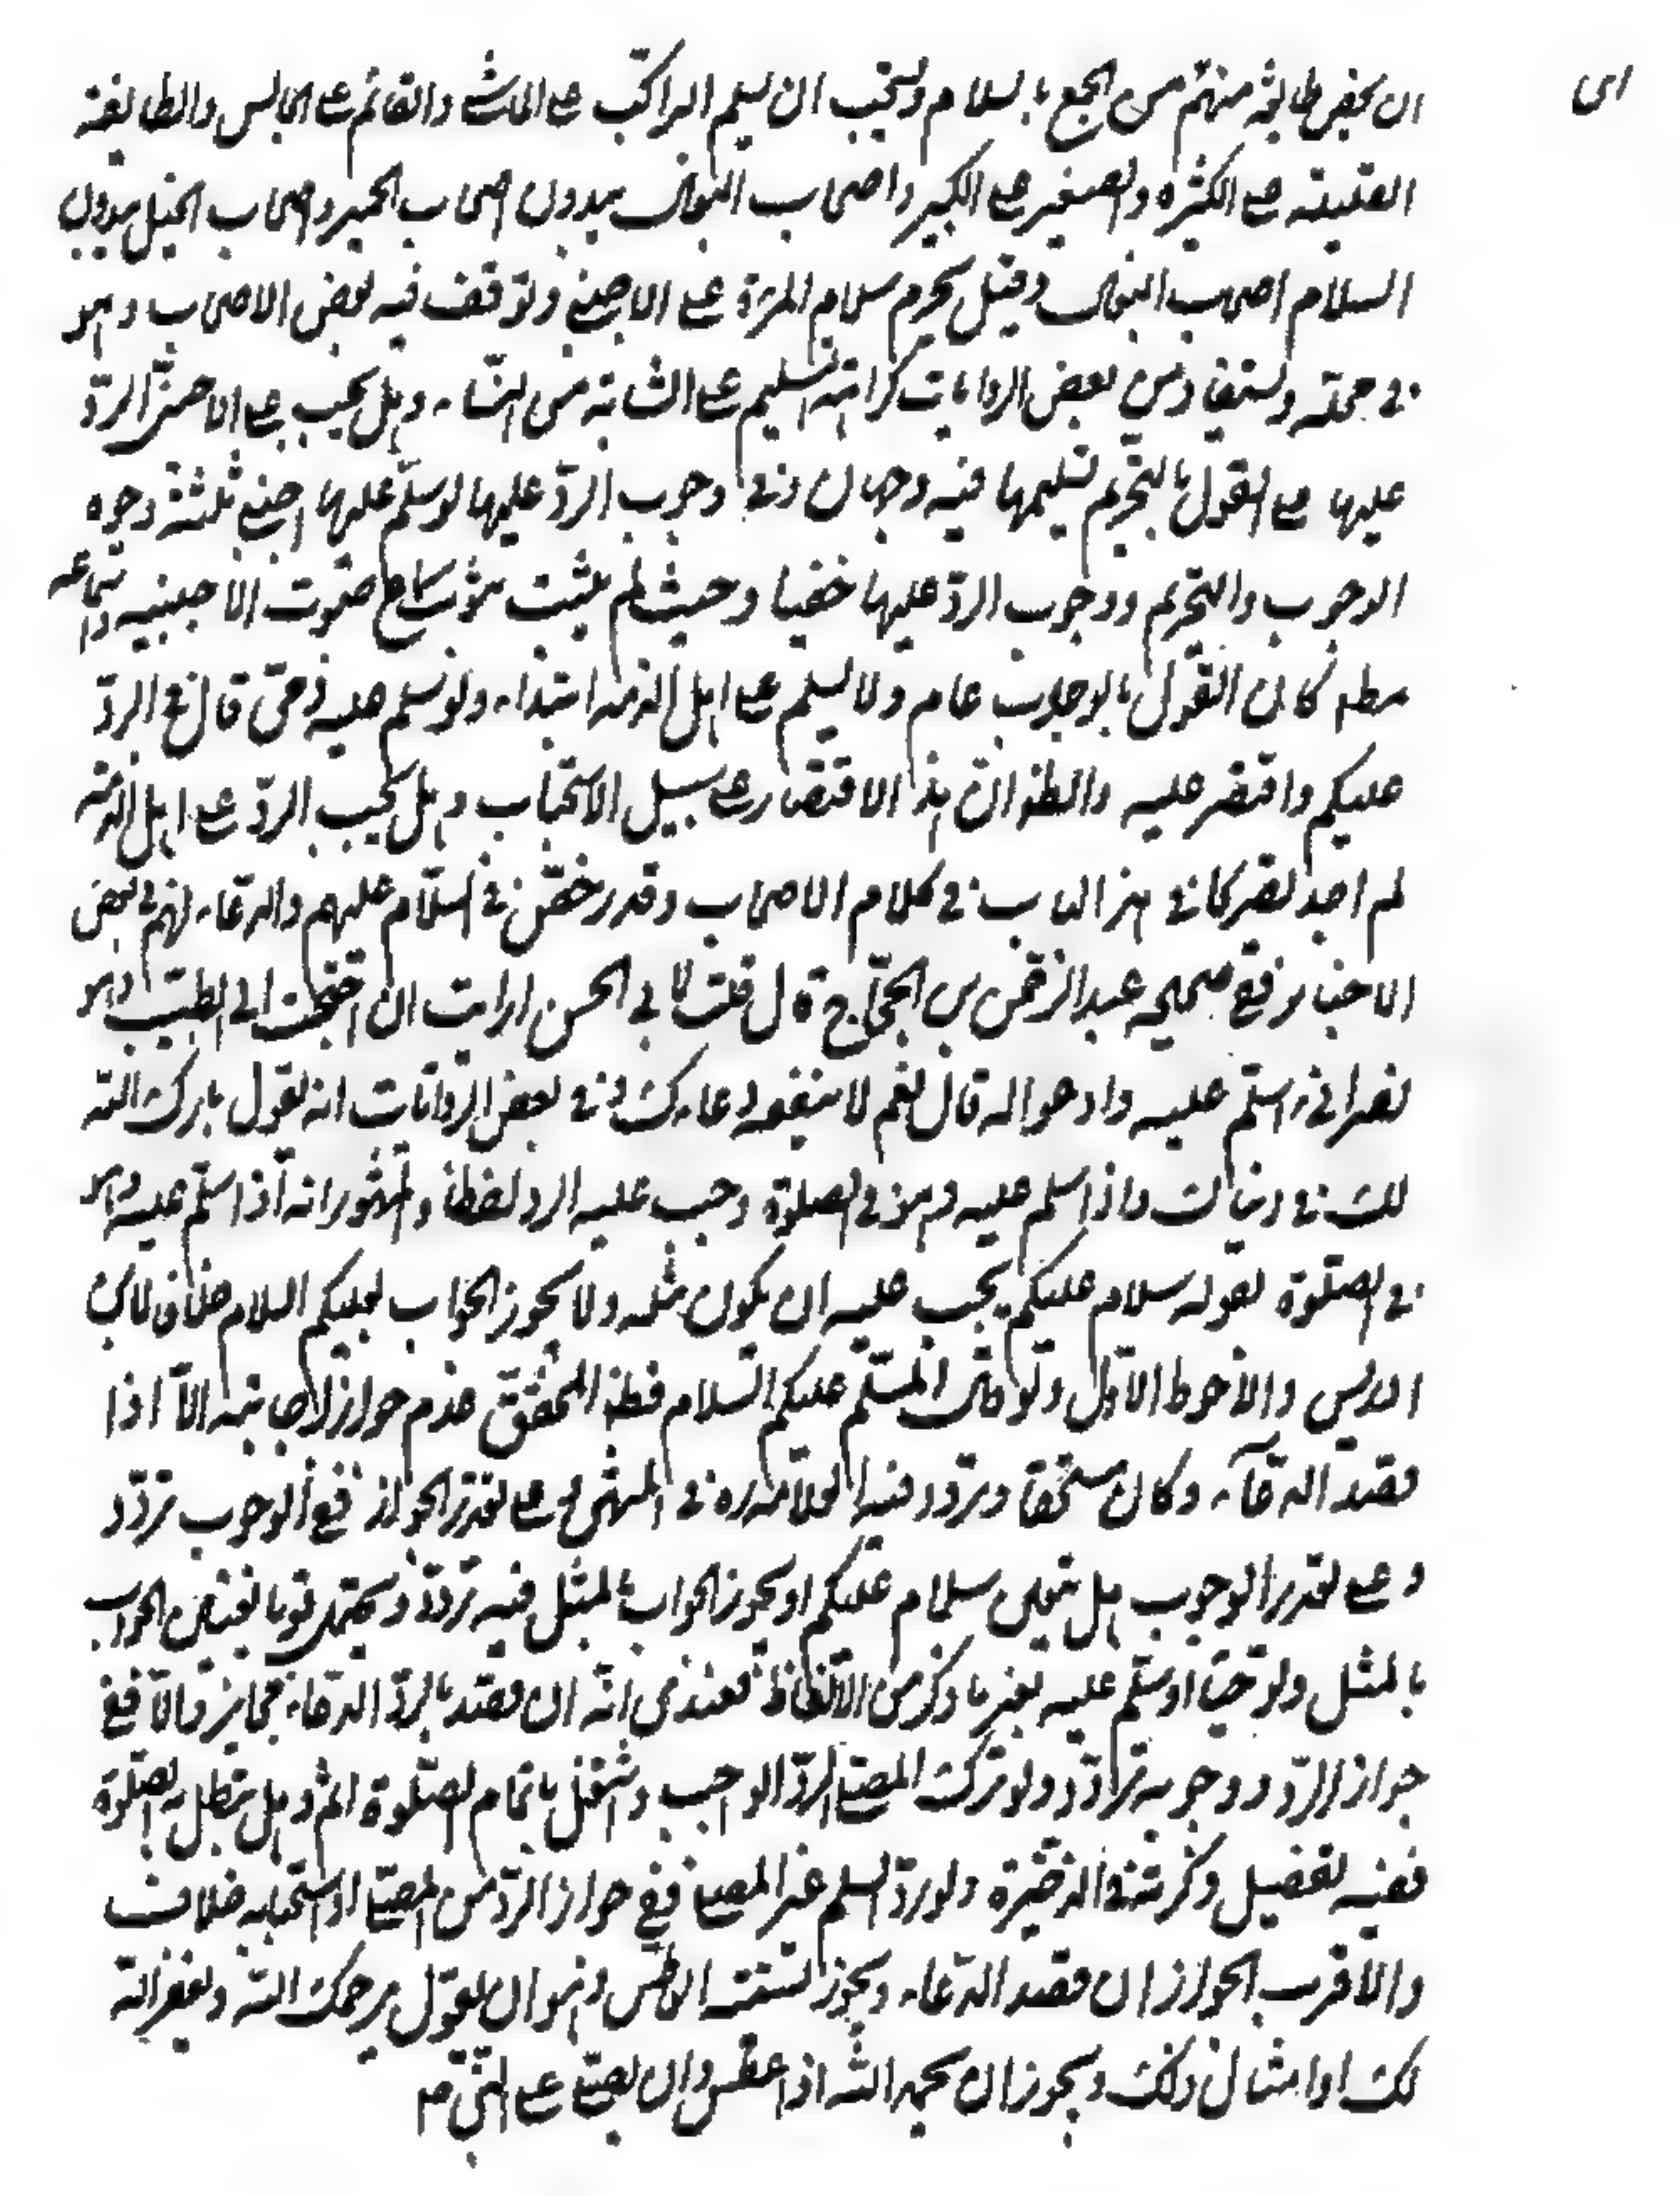 ان يخص طائفة منهم من الجمع بالسلام ويستحب ان يسلم الراكب على الماشي والقائم على الجالس والطايفة
القليلة على الكثيرة والصغير على الكبير واصحاب البغال يبدؤن اصحاب الحمير واصحاب الخيل يبدؤن
السلام اصحاب البغال وقيل يحرم سلام المرأة على الاجنبي وتوقف فيه بعض الاصحاب وهو
في محله ويستفاد من بعض الروايات كراهة التسليم على الشابة من النساء وهل يجب على الاجنبي الرد
عليها على القول بالتحريم تسليمها فيه وجهان وفي وجوب الرد عليها لو سلم عليها اجنبي ثلثة وجوه
الوجوب والتحريم ووجوب الرد عليها خفيا وحيث لم يثبت صوت الاجنبية
مطلقا كان القول بالوجوب عام ولا يسلم على اهل الذمة ابتداء ولو سلم عليه ذمي قال في الرد
عليكم واقتصر عليه والظ ان هذا الاقتصار على سبيل الاستحباب وهل يجب الرد على اهل الذمة
لم اجد تصريحا في هذا الباب في كلام الاصحاب وقد رخص في السلام عليهم والدعاء لهم في بعض
الاخبار ففي صحيحة عبد الرحمن بن الحجاج قال قلت لابي الحسن ارايت ان احتجت الى الطبيب وهو
نصراني اسلم عليه وادعو له قال نعم لا ينفعه دعاءك وفي بعض الروايات انه يقول بارك الله
لك في دنياك واذا سلم عليه وهو في الصلوة وجب عليه الرد لفظا والمشهور انه اذا سلم عليه وهو
في الصلوة بقوله سلام عليكم يجب عليه ان يكون مثله ولا يجوز الجواب بعليكم السلام خلافا لابن
ادريس والاحوط الاول ولو قال المسلم عليكم السلام فظ المحقق عدم جواز اجابته الا اذا
قصد الدعاء وكان مستحقا وتردد فيه العلامة ره في المنتهى وعلى تقدير الجواز ففي الوجوب تردد
وعلى تقدير الوجوب هل يتعين سلام عليكم او يجوز الجواب بالمثل فيه تردد ويحتمل قويا تعين الجواب
بالمثل ولو حيا او سلم عليه بغير ما ذكر من الالفاظ فعندي انه ان قصد بالرد الدعاء فجايز والا ففي
جواز الرد ووجوبه تردد ولو ترك المصلي الرد الواجب واشتغل باتمام الصلوة اثم وهل تبطل به الصلوة
ففيه تفصيل ذكرته في الذخيرة ولو رد السلم غير المصلي ففي جواز الرد من المصلي او استحبابه خلاف
والاقرب الجواز ان قصد الدعاء ويجوز تسميت العاطس وهو ان يقول يرحمك الله ويغفر الله
لك او امثال ذلك ويجوز ان يحمد الله اذا عطس وان يصلي على النبي ص